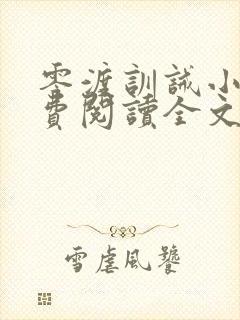 零渡訓誡小
費閱讀全文
雪虐風饕